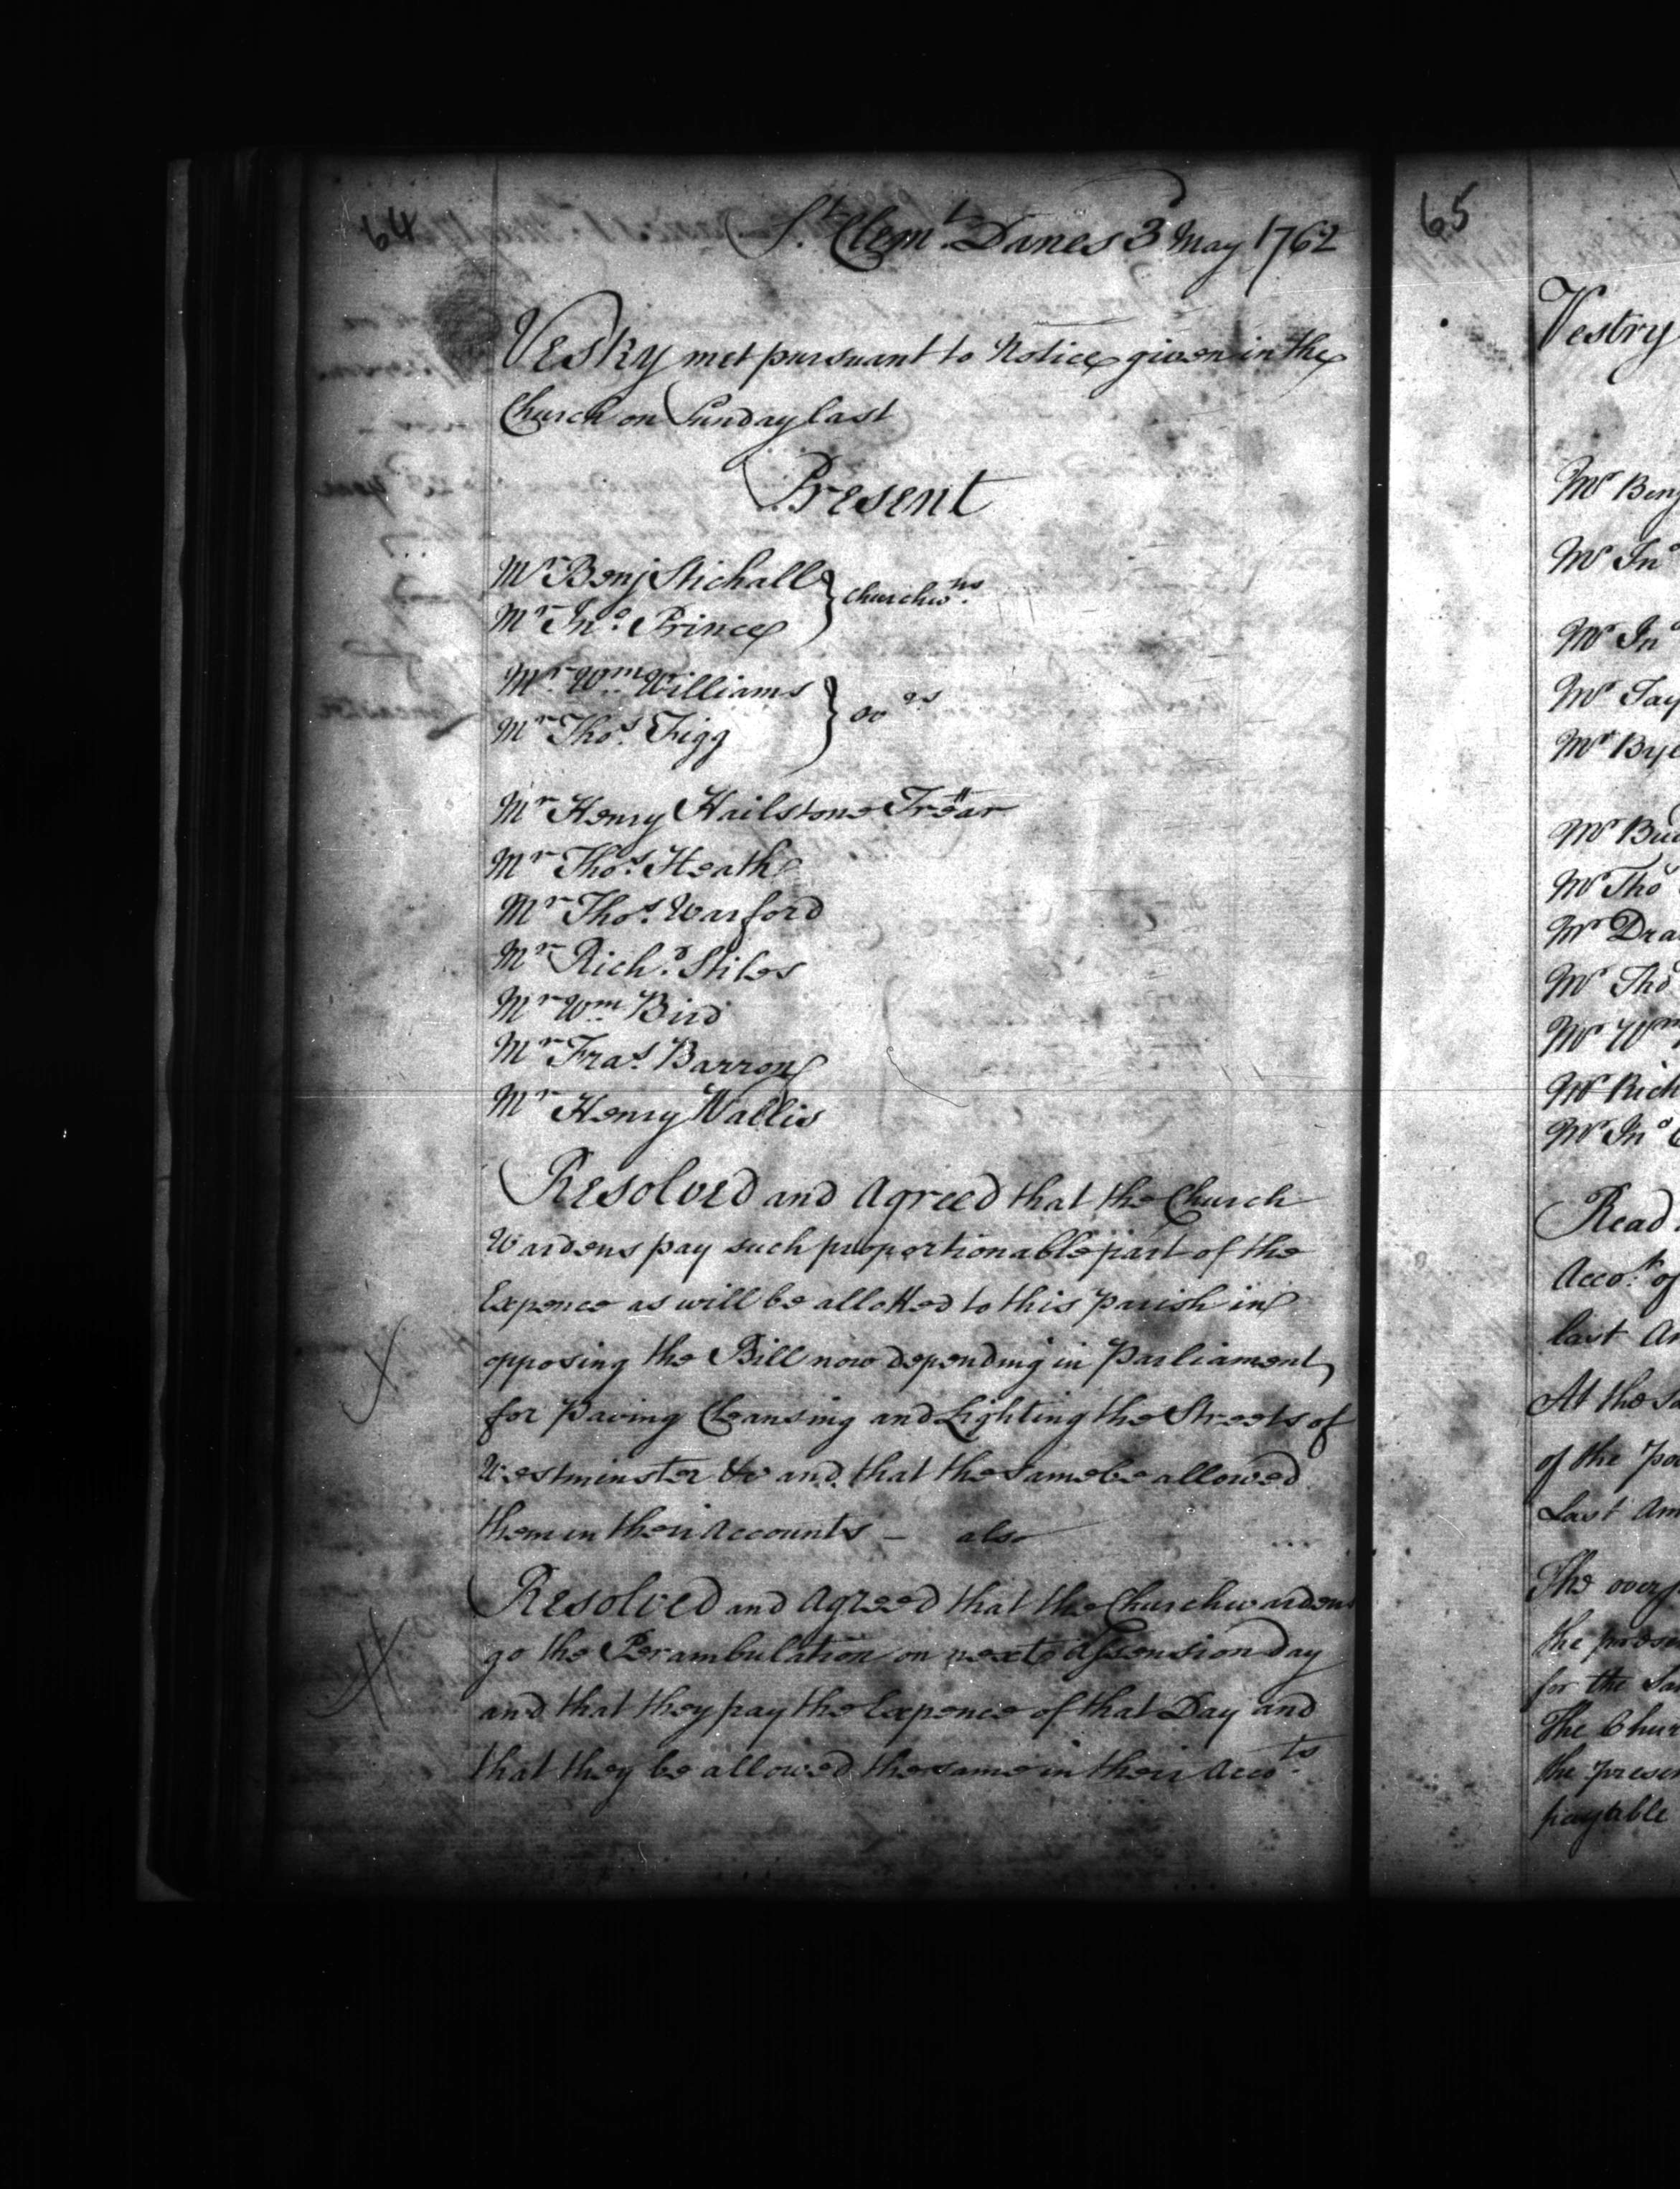 64
St. Clemt. Danes 3d May 1762
Vestry met pursuant to Notice given in the
Church on Sunday last
Present
Mr Benj Stichall } Churchwns.
Mr Jno. Prince
Mr Wm Williams } Ovrs
Mr Thos. Figg
Mr Henry Hailstone Treãr
Mr Thos. Heath
Mr Thos. Warford
Mr Richd. Stiles
Mr Wm Bird
Mr Fras. Barron
Mr Henry Wallis
Resolved and Agreed that the Church
Wardens pay such proportionable part of the
Expence as will be allotted to this Parish in
opposing the Bill now depending in Parliament
for Paving Cleansing and Lighting the Streets of
Westminster &c and that the same be allowed
them in their Accounts — also
Resolved and Agreed that the Churchwardens
go the Perambulation on next Assension Day
and that they pay the Expence of that Day and
that they be allowed the same in their Accots.
65
Vestry
Mr Benj
Mr Jno
Mr Jno
Mr Tay
Mr Bye
Mr Bu
Mr Thos
Mr Dra
Mr Thos
Mr Wm
Mr Rich
Mr Jno
Read
Accot. of
last Am
At the sa
of the Poo
Last Am
The over
the prese
for the sa
The Chur
the Presen
payable